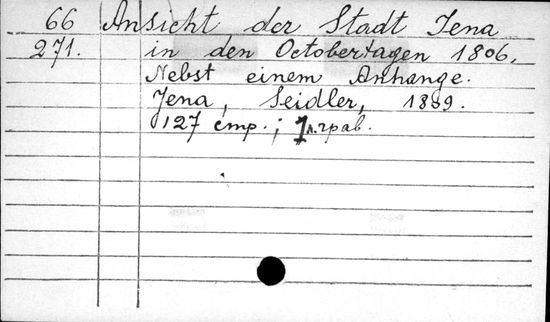 66 Ansicht der Stadt Jena
271. in den Octobertagen 1806.
Nebst einem Anhange.
Jena, Seidler, 1809.
127 стр.; 1 л. грав.